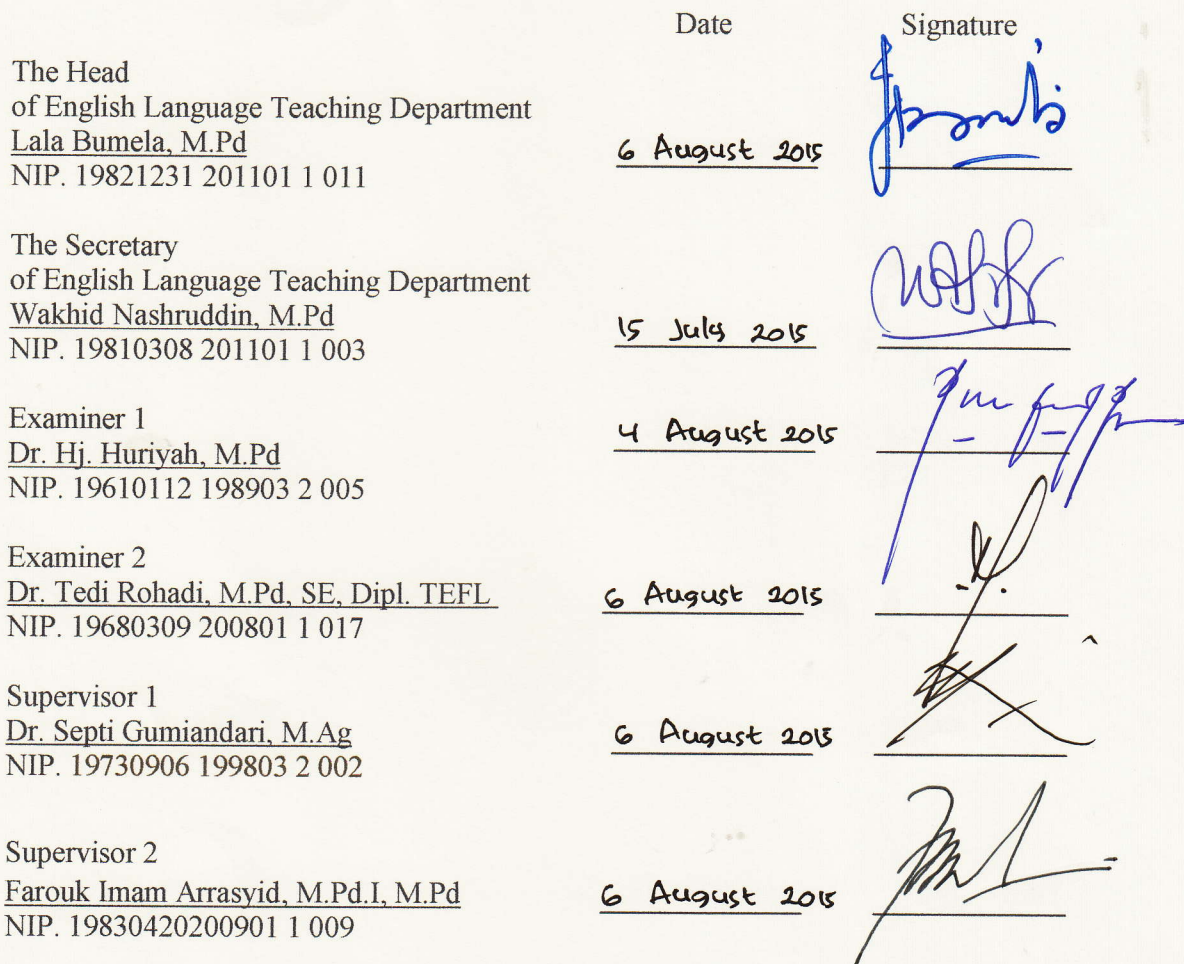 Date Signature
The Head
of English Language Teaching Department
Lala Bumela, M.Pd
NIP. 19821231 201101 1 011
6 August 2015
The Secretary
of English Language Teaching Department
Wakhid Nashruddin, M.Pd
NIP. 19810308 201101 1 003
15 July 2015
Examiner 1
Dr. Hj. Huriyah, M.Pd
NIP. 19610112 198903 2 005
4 August 2015
Examiner 2
Dr. Tedi Rohadi, M.Pd, SE, Dipl. TEFL
NIP. 19680309 200801 1 017
6 August 2015
Supervisor 1
Dr. Septi Gumiandari, M.Ag
NIP. 19730906 199803 2 002
6 August 2015
Supervisor 2
Farouk Imam Arrasyid, M.Pd.I, M.Pd
NIP. 19830420200901 1 009
6 August 2015